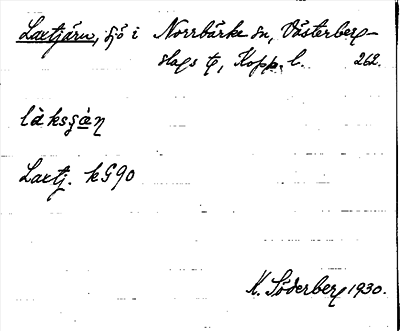 Laxtjärn, sjö i Norrbärke sn, Västerberg-
slags tg, Kopp. l. 262.
làksʂà̱ɳ
Laxtj. kG90
K. Söderberg 1930.